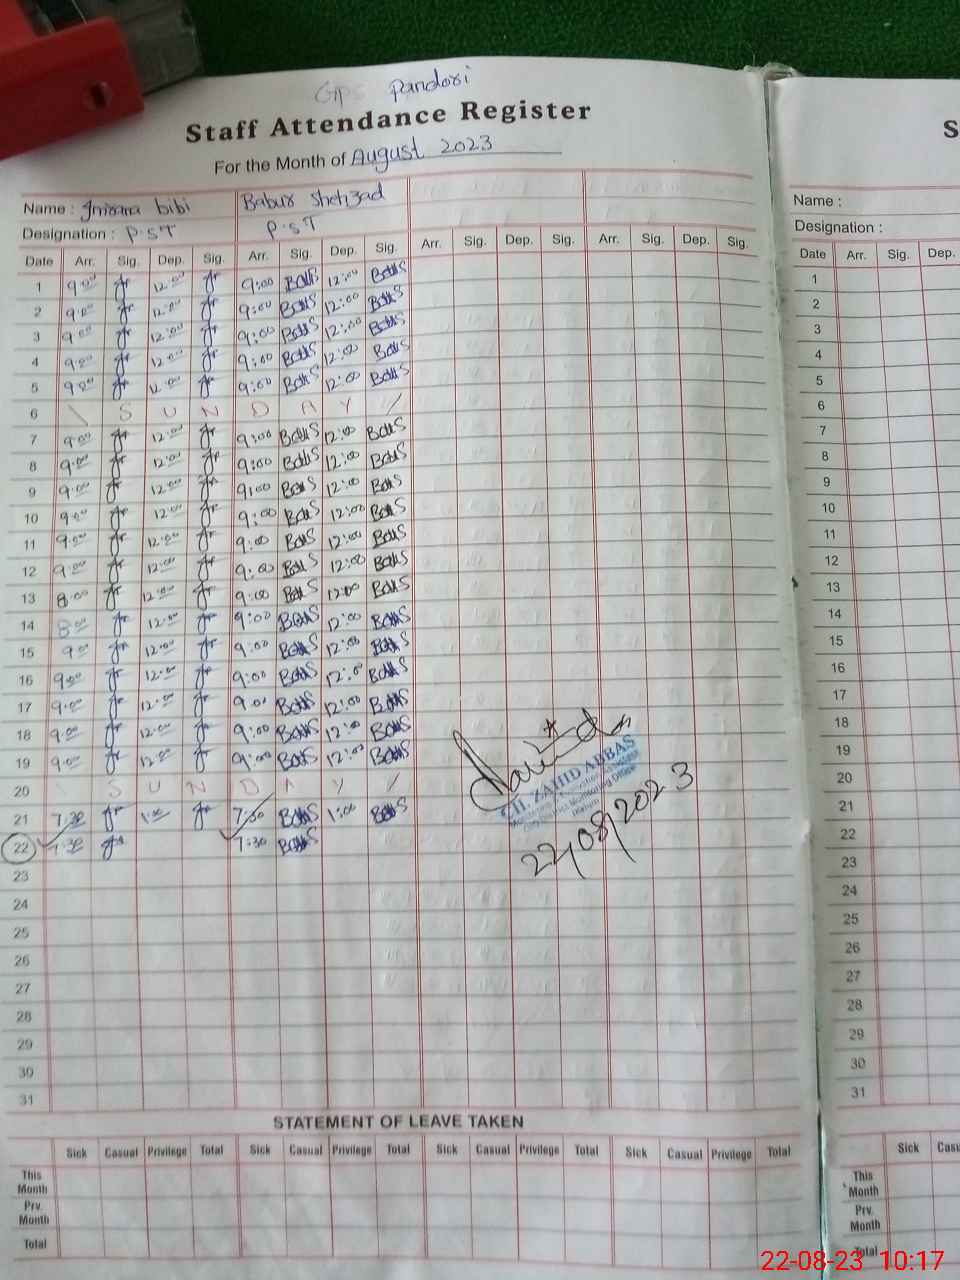 GPS Pandori
Staff Attendance Register
For the Month of August 2023
Name : Imrana bibi Babur Shehzad
Designation : P.S.T P.S.T
Date Arr. Sig. Dep. Sig. Arr. Sig. Dep. Sig. Arr. Sig. Dep. Sig. Arr. Sig. Dep. Sig.
1 9:00 12:00 9:00 12:00
2 9:00 12:00 9:00 12:00
3 9:00 12:00 9:00 12:00
4 9:00 12:00 9:00 12:00
5 9:00 12:00 9:00 12:00
6 S U N D A Y
7 9:00 12:00 9:00 12:00
8 9:00 12:00 9:00 12:00
9 9:00 12:00 9:00 12:00
10 9:00 12:00 9:00 12:00
11 9:00 12:00 9:00 12:00
12 9:00 12:00 9:00 12:00
13 8:00 12:00 9:00 12:00
14 8:00 12:00 9:00 12:00
15 9:00 12:00 9:00 12:00
16 9:00 12:00 9:00 12:00
17 9:00 12:00 9:00 12:00
18 9:00 12:00 9:00 12:00
19 9:00 12:00 9:00 12:00
20 S U N D A Y
21 7:30 1:00 7:30 1:00
22 7:30 7:30
23
24
25
26
27
28
29
30
31
CH. ZAHID ABBAS
22/08/2023
STATEMENT OF LEAVE TAKEN
Sick Casual Privilege Total Sick Casual Privilege Total Sick Casual Privilege Total Sick Casual Privilege Total
This Month
Prv. Month
Total
S
Name :
Designation :
Date Arr. Sig. Dep.
1
2
3
4
5
6
7
8
9
10
11
12
13
14
15
16
17
18
19
20
21
22
23
24
25
26
27
28
29
30
31
Sick
This Month
Prv. Month
Total
22-08-23 10:17